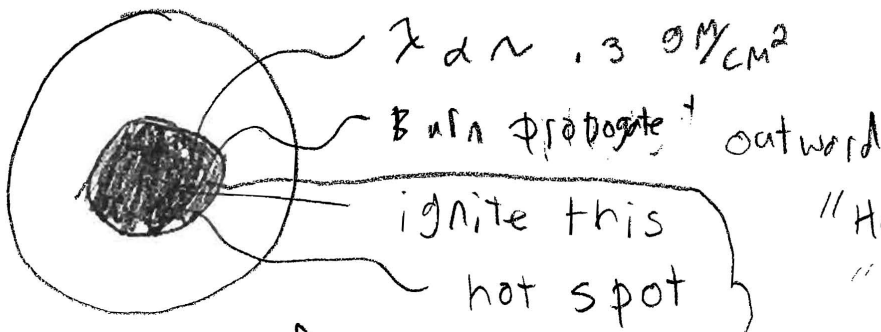 λ α ~ .3 gm/cm²
Burn propagate outward
ignite this
hot spot
"H